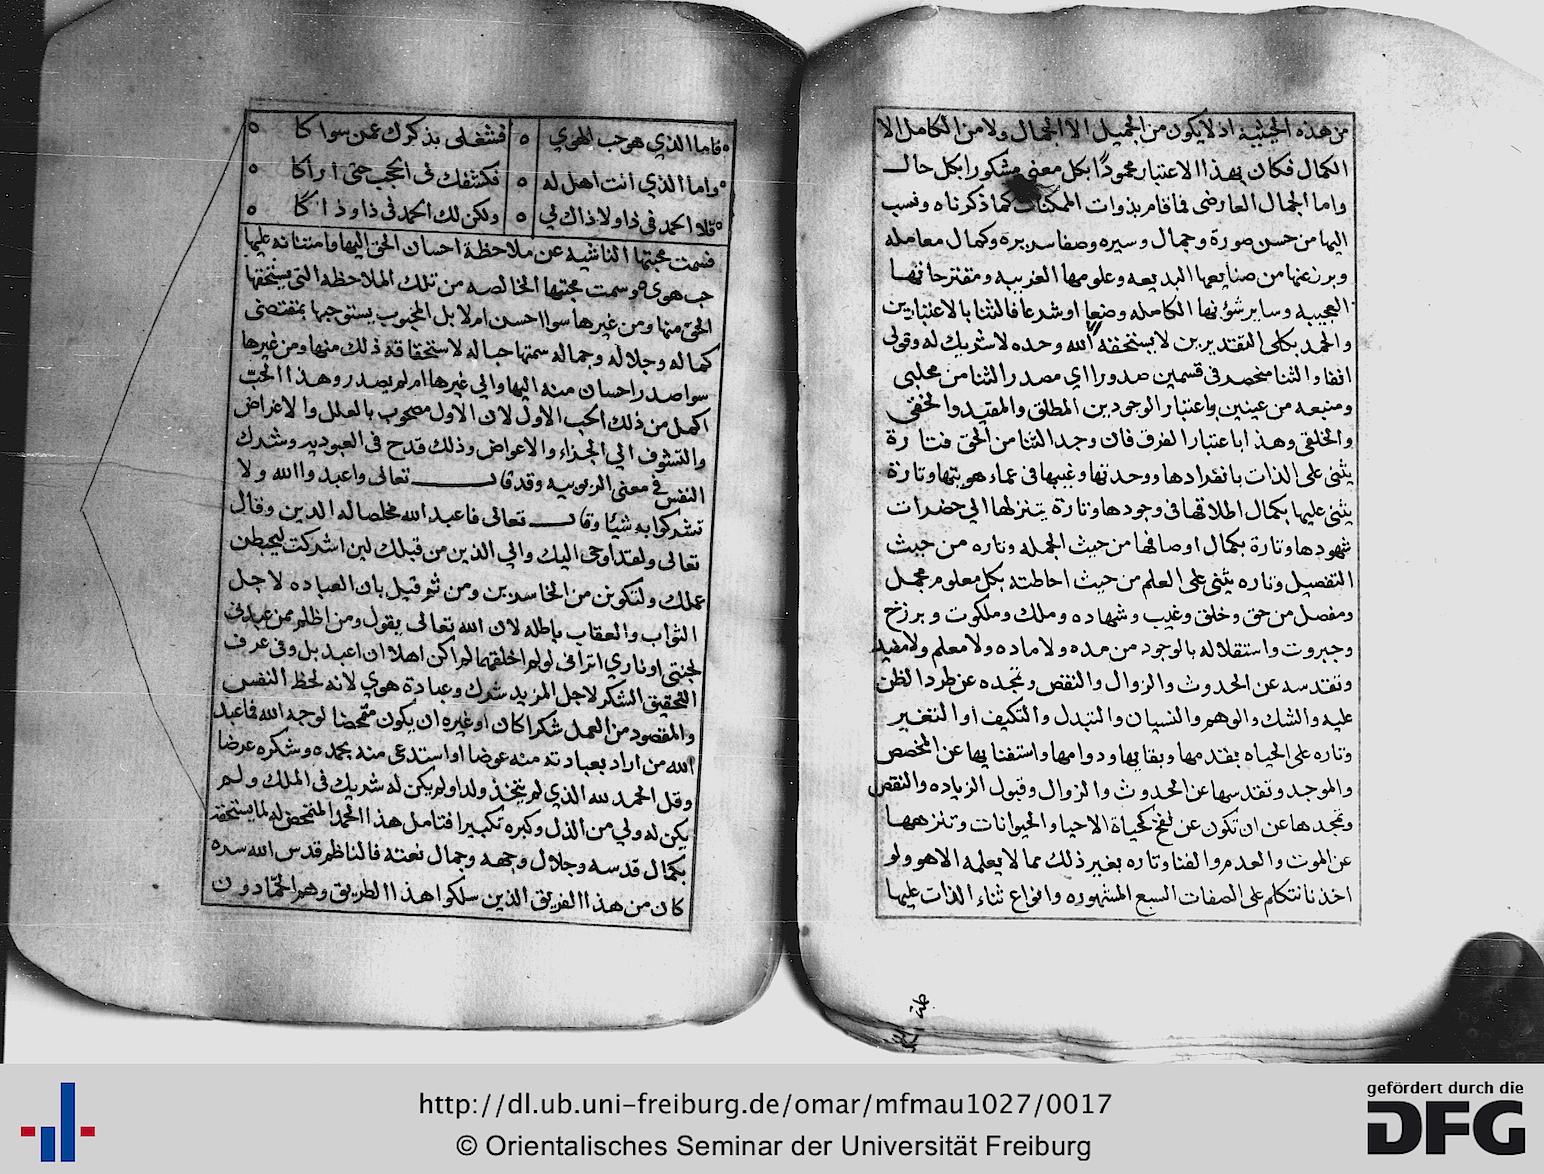 من هذه الحيثية اذ لا يكون من الجميل الا الجمال ولا من الكامل الا
الكمال فكان بهذا الاعتبار محمودًا بكل معنى مشكورا بكل حال
واما الجمال العارضى فما قام بذوات الممكنات كما ذكرناه ونسب
اليها من حسن صورة وجمال وسيره وصفا سريره وكمال معامله
وبرز عنها من صنايعها البديعه وعلومها الغريبه ومقترحاتها
العجيبه وساير شؤنها الكامله وضعا او شرعا فالثنا بالاعتبارين
والحمد بكلى التقديرين لا يستحقه الا الله وحده لا شريك له وقولى
انفا والثنا منحصر فى قسمين صدورا اي مصدر الثنا من محلين
ومنبعه من عينين واعتبار الوجودين المطلق والمقيد والحقى
والخلقى وهذا باعتبار الفرق فان وجد الثنا من الحق فتارة
يثنى على الذات بانفرادها ووحدتها وغيبها فى عماء هويتها وتارة
يثنى عليها بكمال اطلاقها فى وجودها وتارة بتنزلها الي حضرات
شهودها وتارة بكمال اوصافها من حيث الجمله وتاره من حيث
التفصيل وتاره يثنى على العلم من حيث احاطته بكل معلوم مجمل
ومفصل من حق وخلق وغيب وشهاده وملك وملكوت وبرزخ
وجبروت واستقلاله بالوجود من مده ولا ماده ولا معلم ولا مفيد
وتقدسه عن الحدوث والزوال والنقص وتمجده عن طرد الظن
عليه والشك والوهم والنسيان والتبدل والتكيف او التغير
وتاره على الحياه بقدمها وبقايها ودوامها واستغنايها عن المخصص
والموجد وتقدسها عن الحدوث والزوال وقبول الزياده والنقص
وتمجدها عن ان تكون عن نفخ كحياة الاحيا والحيوانات وتنزهها
عن الموت والعدم والفنا وتاره بغير ذلك مما لا يعلمه الا هو ولو
اخذنا نتكلم على الصفات السبع المشهوره وانواع ثناء الذات عليها
فاما الذي هو حب الهوي ه فشغلى بذكرك عمن سواكا ه
واما الذي انت اهل له ه فكشفك لى الحجب حتى اراكا ه
فلا الحمد فى ذا ولا ذاك لي ه ولكن لك الحمد فى ذا وذاكا ه
فسمت محبتها الناشيه عن ملاحظة احسان الحق اليها وامتنانه عليها
حب هوى وسمت محبتها الخالصه من تلك الملاحظه التى يستحقها
الحق منها ومن غيرها سوا احسن ام لا بل المحبوب يستوجبها بمقتضى
كماله وجلاله وجماله سمتها حبا له لاستحقاقه ذلك منها ومن غيرها
سوا صدر احسان منه اليها والي غيرها ام لم يصدر وهذا الحب
اكمل من ذلك الحب الاول لان الاول مصحوب بالعلل والاغراض
والتشوف الي الجزاء والاعواض وذلك قدح فى العبوديه وشرك
النفس فى معنى الربوبيه وقد قال تعالى واعبدوا الله ولا
تشركوا به شيًا وقال تعالى فاعبد الله مخلصا له الدين وقال
تعالى ولقد اوحى اليك والي الذين من قبلك لين اشركت ليحبطن
عملك ولتكونن من الخاسرين ومن ثم قيل بان العباده لاجل
الثواب والعقاب باطله لان الله تعالى يقول ومن اظلم ممن عبدنى
لجنتى او ناري اترانى لو لم اخلقهما لم اكن اهلا ان اعبد بل وفى عرف
التحقيق الشكر لاجل المزيد شرك وعبادة هوي لانه لحظ النفس
والمقصود من العمل شكرا كان او غيره ان يكون متمحضا لوجه الله فاعبد
الله من اراد بعبادته منه عوضا او استدعى منه بحمده وشكره عرضا
وقل الحمد لله الذي لم يتخذ ولدا ولم يكن له شريك فى الملك ولم
يكن له ولي من الذل وكبره تكبيرا فتامل هذا الحمد المتمحض له لما يستحقه
بكمال قدسه وجلال وجهه وجمال نعته فالناظم قدس الله سره
كان من هذا الفريق الذين سلكوا هذا الطريق وهم الحمادون
http://dl.ub.uni-freiburg.de/omar/mfmau1027/0017
© Orientalisches Seminar der Universität Freiburg
gefördert durch die
DFG